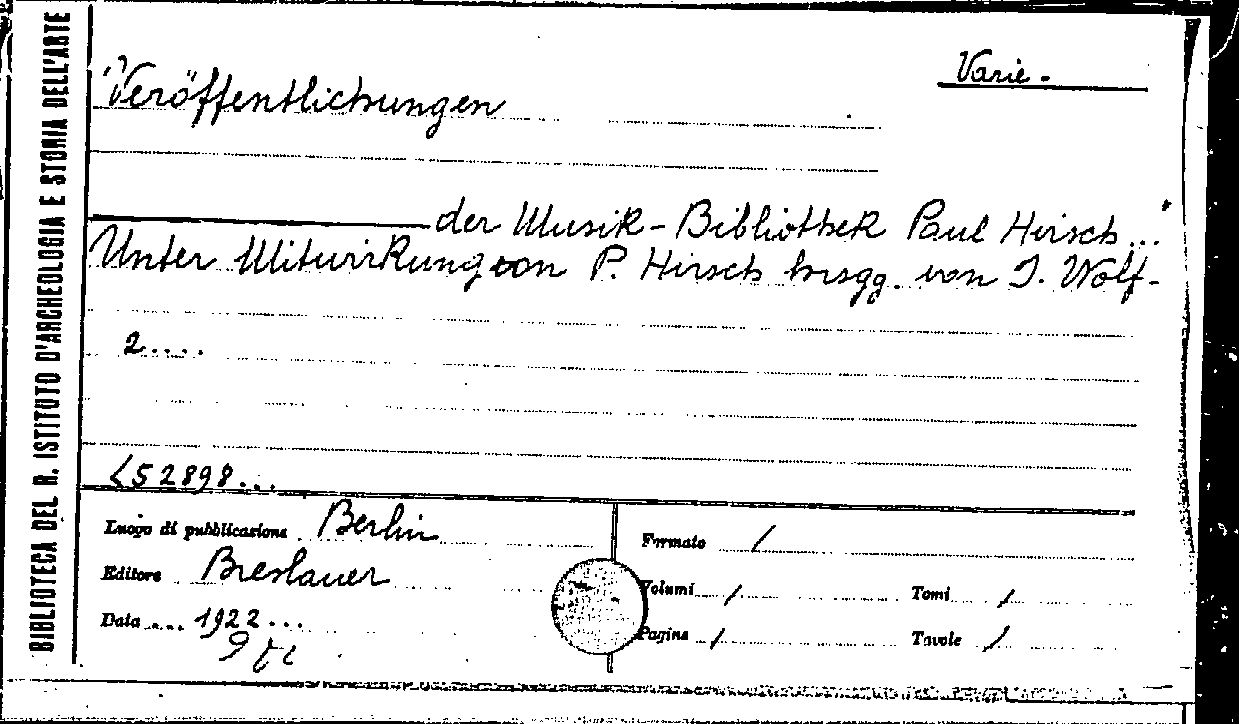 BIBLIOTECA DEL R. ISTITUTO D'ARCHEOLOGIA E STORIA DELL'ARTE
Varie.
"Veröffentlichungen
der Musik-Bibliothek Paul Hirsch..."
Unter Mitwirkung von P. Hirsch hrsgg. von J. Wolf-
2....
<52898...
Luogo di pubblicazione Berlin
Formato /
Editore Breslauer
Volumi / Tomi /
Data .... 1922...
Pagine / Tavole /